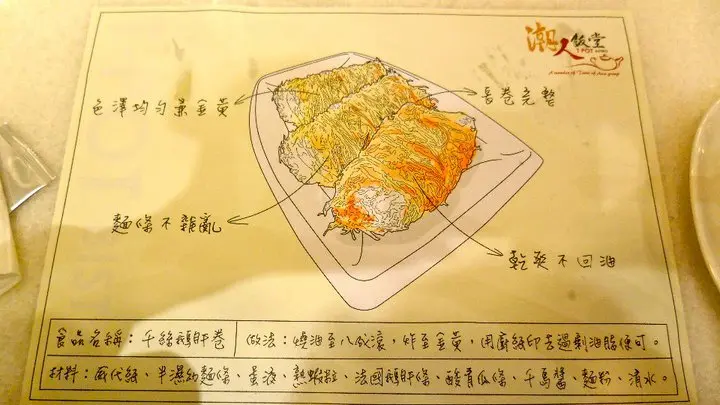 潮人飯堂
1 POT
A member of Taste of Asia group
色澤均勻兼金黃
長卷完整
麵條不雜亂
乾爽不回油
食品名稱：千絲鵝肝卷
做法：燒油至八成滾，炸至金黃，用廚紙印去過剩油脂便可。
材料：威代紙，半濕幼麵條，蛋液，熟蝦粒，法國鵝肝條，酸青瓜條，千島醬，麵粉，清水。